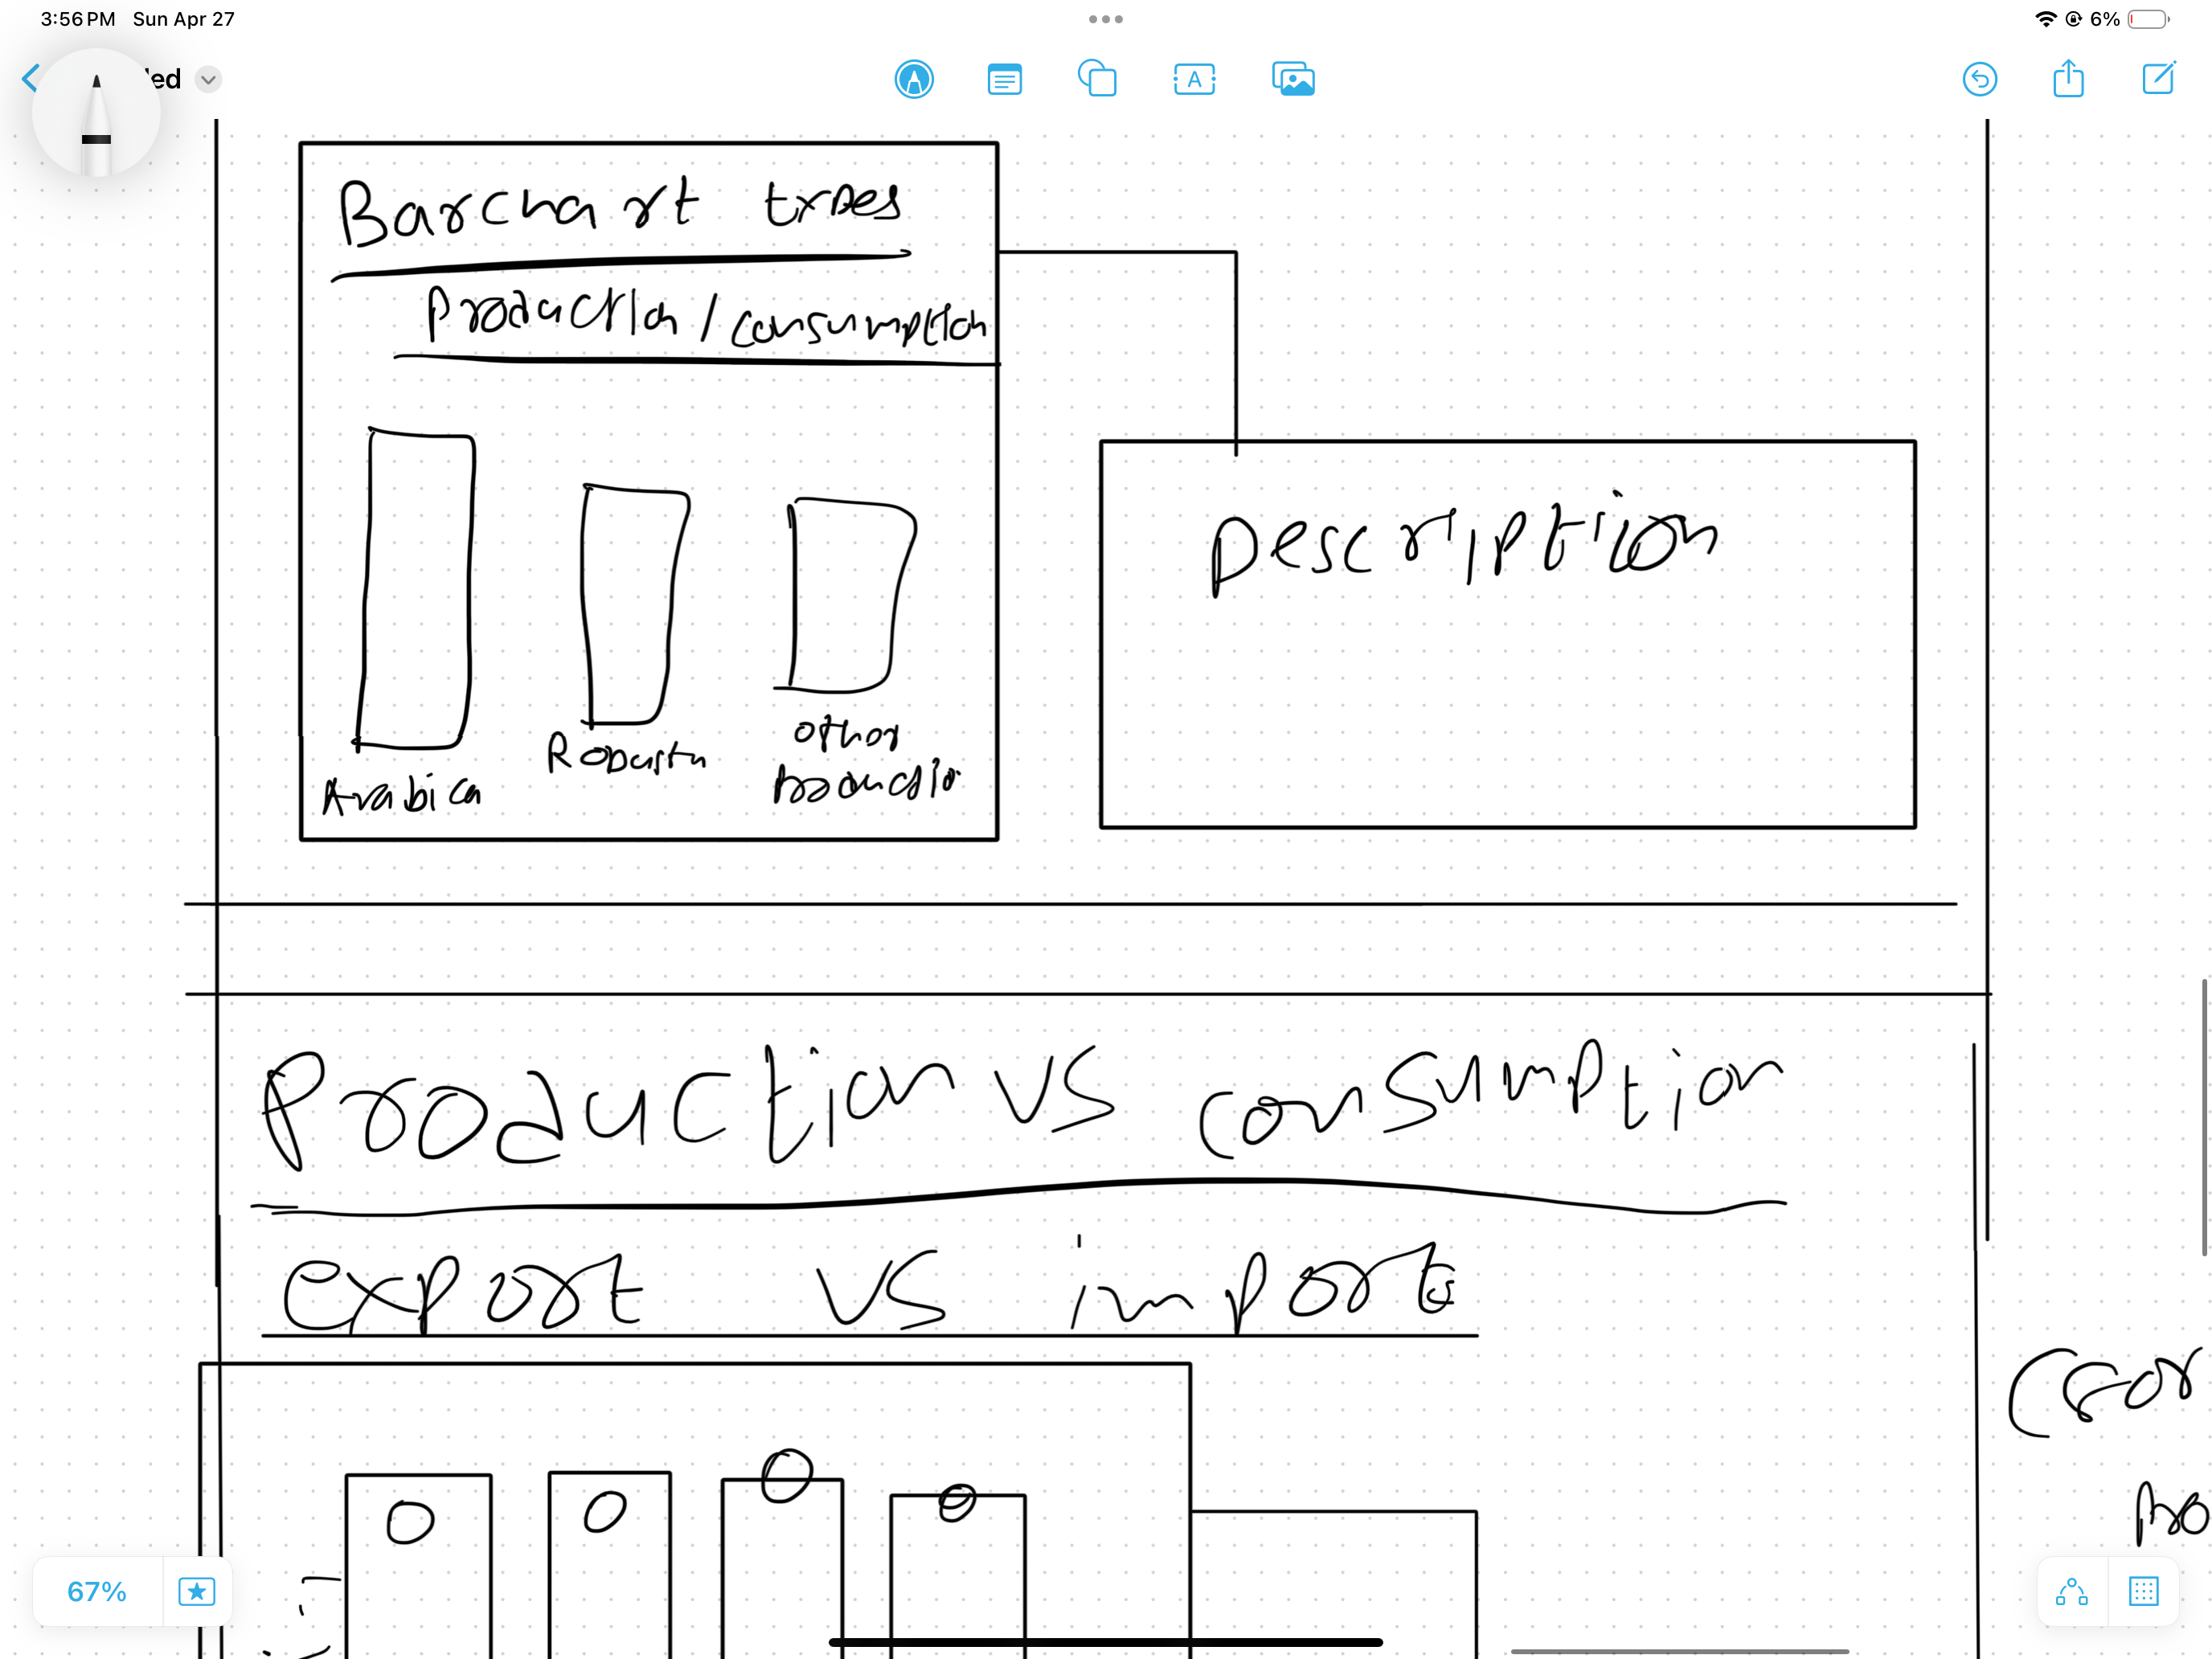 3:56 PM Sun Apr 27
6%
led
A
Barchart types
Production / consumption
Description
Arabica
Robusta
other
productio
Production vs consumption
export vs imports
67%